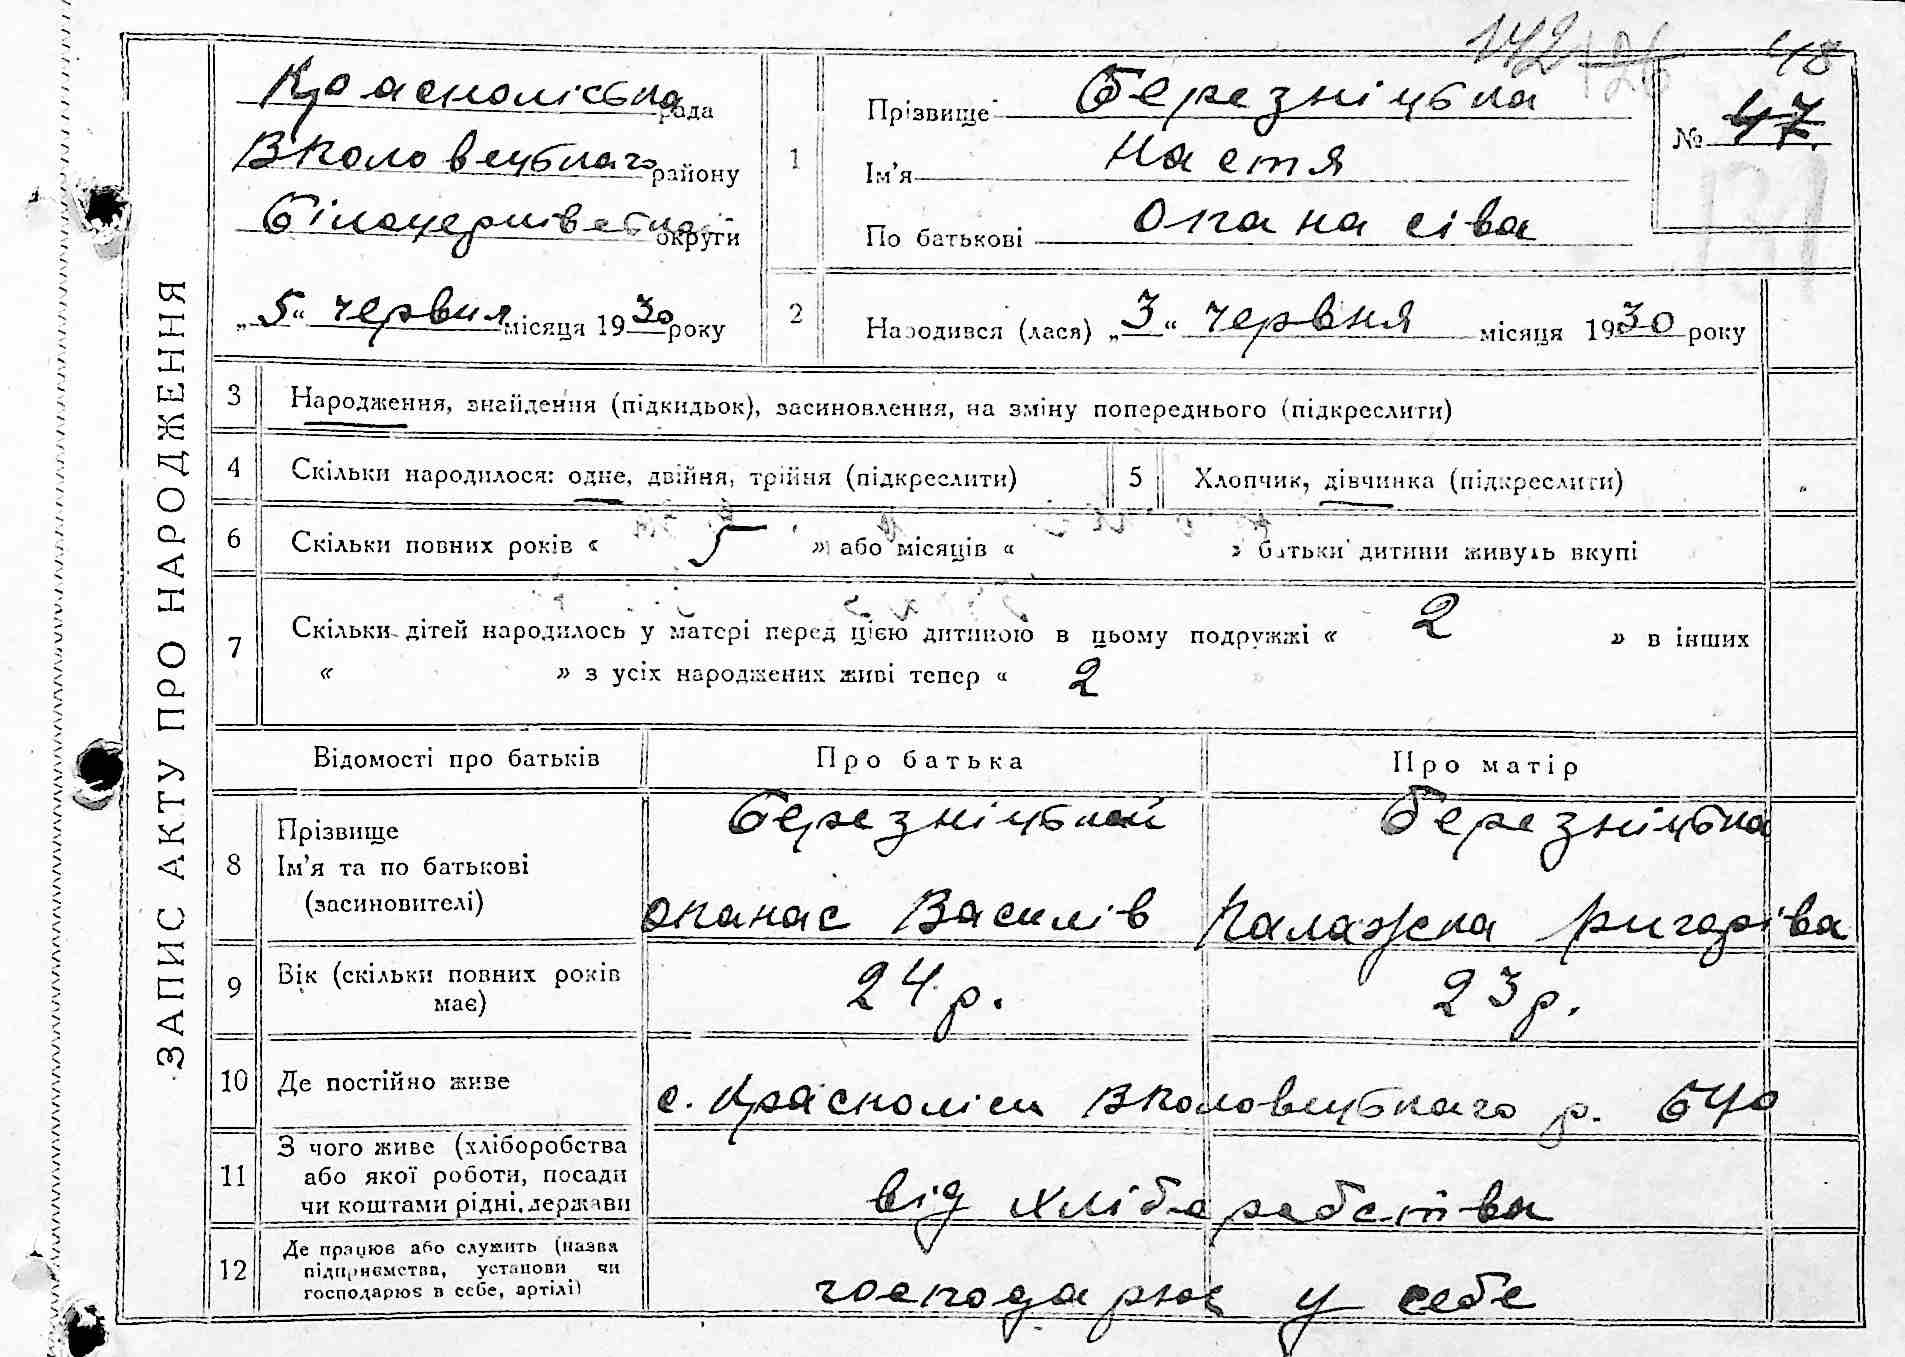 ЗАПИС АКТУ ПРО НАРОДЖЕННЯ
142 126 48
Красноліська рада
Вколовецького району
Білоцерківська округи
„5“ червня місяця 1930 року
1
Прізвище Березніцька
Ім'я Настя
По батькові Опанасіва
№ 47
131
2
Народився (лася) „3“ червня місяця 1930 року
3 Народження, знайдення (підкидьок), засиновлення, на зміну попереднього (підкреслити)
4 Скільки народилося: одне, двійня, трійня (підкреслити) 5 Хлопчик, дівчинка (підкреслити)
6 Скільки повних років « 5 » або місяців « » батьки дитини живуть вкупі
7 Скільки дітей народилось у матері перед цією дитиною в цьому подружжі « 2 » в інших
« » з усіх народжених живі тепер « 2
Відомості про батьків Про батька Про матір
8 Прізвище
Ім'я та по батькові
(засиновителі)
Березніцькай
Опанас Василів
Березніцька
Палажка Ригоріва
9 Вік (скільки повних років
має)
24 р. 23 р.
10 Де постійно живе с. Красноліси Вколовецькаго р. БЦО
11 З чого живе (хліборобства
або якої роботи, посади
чи коштами рідні, держави
від хліборобства
12 Де працює або служить (назва
підприємства, установи чи
господарює в себе, артілі)
господарює у себе